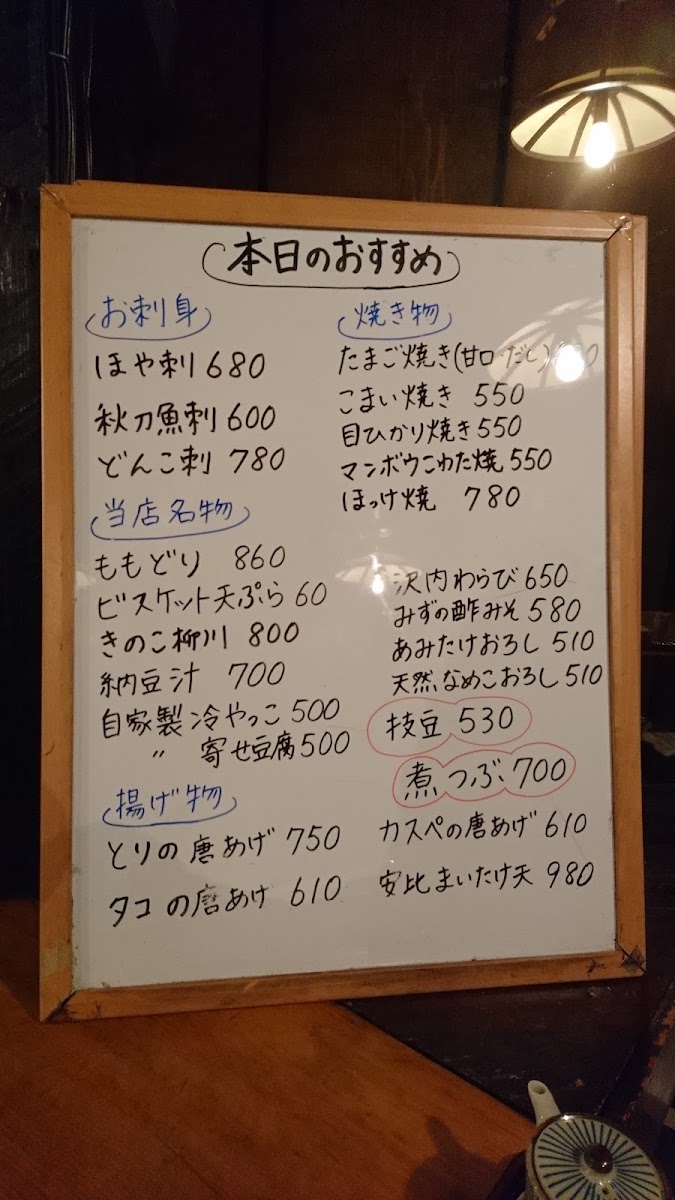 本日のおすすめ
お刺身
ほや刺 680
秋刀魚刺 600
どんこ刺 780
当店名物
ももどり 860
ビスケット天ぷら 60
きのこ柳川 800
納豆汁 700
自家製 冷やっこ 500
〃 寄せ豆腐 500
揚げ物
とりの唐あげ 750
タコの唐あげ 610
焼き物
たまご焼き(甘口・だし)
こまい焼き 550
目ひかり焼き 550
マンボウこわた焼 550
ほっけ焼 780
沢内わらび 650
みずの酢みそ 580
あみたけおろし 510
天然なめこおろし 510
枝豆 530
煮つぶ 700
カスペの唐あげ 610
安比まいたけ天 980